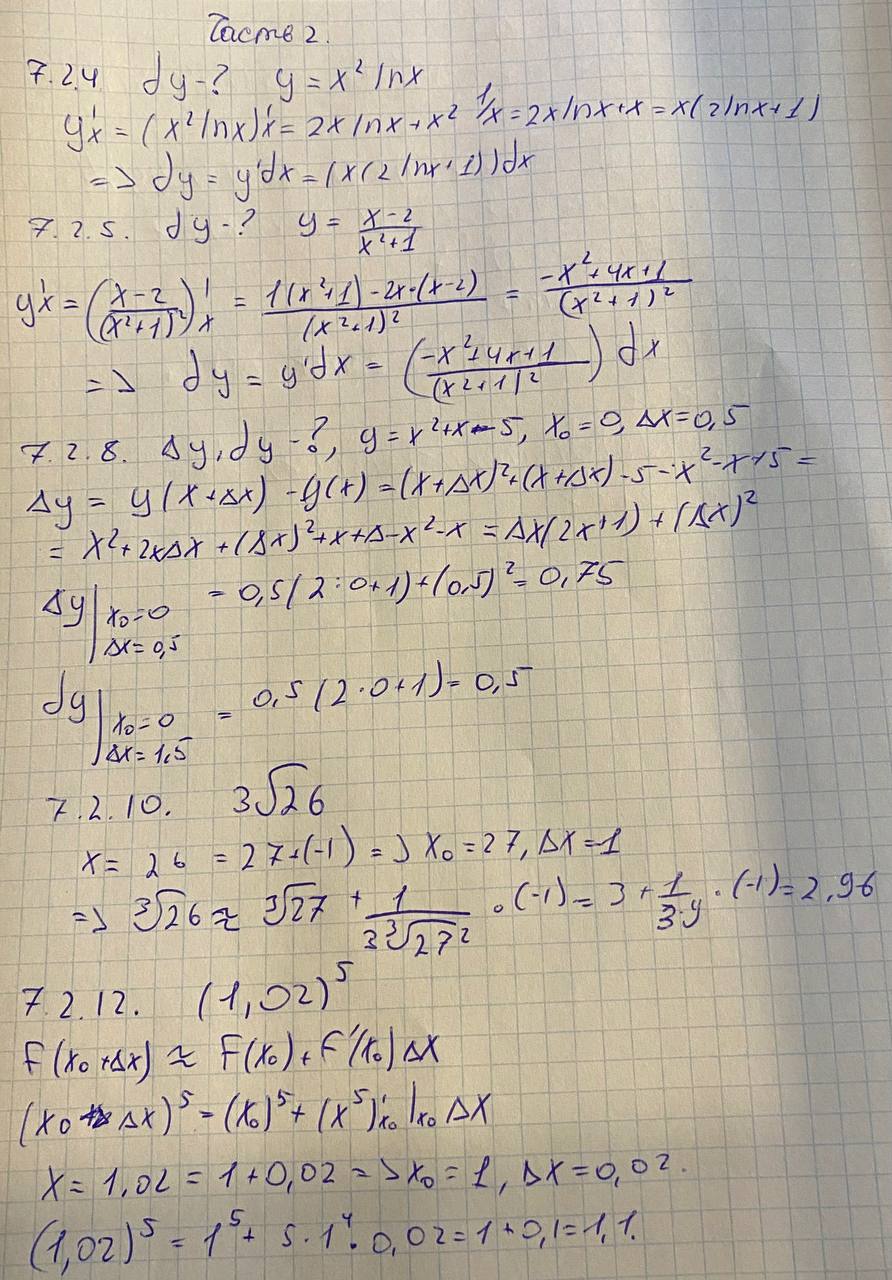 Часть 2.
7.2.4 dy-? y = x² lnx
y'x = (x² lnx)'x = 2x lnx + x² 1/x = 2x lnx + x = x(2lnx+1)
=> dy = y'dx = (x(2lnx+1))dx
7.2.5. dy-? y = (x-2)/(x²+1)
y'x = ((x-2)/(x²+1)²)'x = (1(x²+1)-2x·(x-2))/(x²+1)² = (-x²+4x+1)/(x²+1)²
=> dy = y'dx = ((-x²+4x+1)/(x²+1)²) dx
7.2.8. Δy, dy-?, y = x²+x-5, x₀=0, Δx=0,5
Δy = y(x+Δx) - y(x) = (x+Δx)²+(x+Δx)-5-x²-x+5 =
= x²+2xΔx+(Δx)²+x+Δ-x²-x = Δx(2x+1)+(Δx)²
Δy | x₀=0 Δx=0,5 = 0,5(2·0+1)+(0,5)² = 0,75
dy | x₀=0 Δx=1,5 = 0,5(2·0+1) = 0,5
7.2.10. 3√26
x = 26 = 27+(-1) => x₀=27, Δx=1
=> ³√26 ≈ ³√27 + 1/(3³√27²) · (-1) = 3 + 1/(3·y) · (-1) = 2,96
7.2.12. (1,02)⁵
F(x₀+Δx) ≈ F(x₀)+F'(x₀)Δx
(x₀+Δx)⁵ = (x₀)⁵+(x⁵)'x₀|x₀ Δx
x = 1,02 = 1+0,02 => x₀=1, Δx=0,02.
(1,02)⁵ = 1⁵+ 5·1⁴·0,02 = 1+0,1 = 1,1.